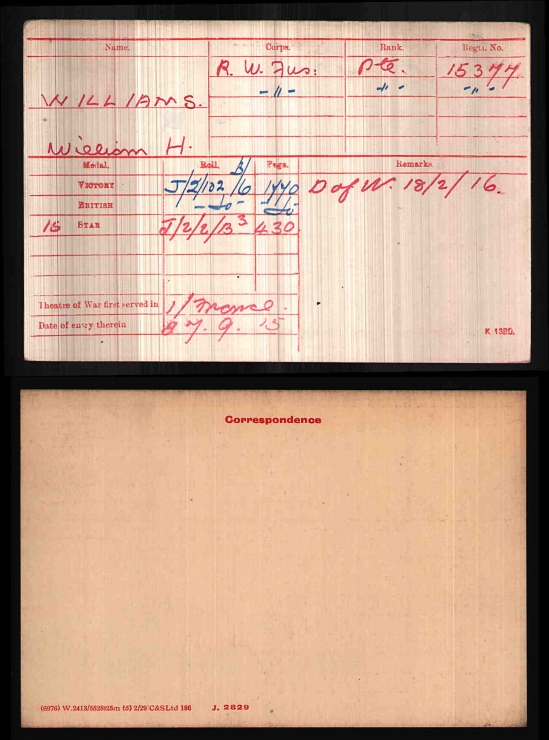 Name. Corps. Rank. Regtl. No.
R. W. Fus: Pte. 15377
WILLIAMS. -"- -"- -"-
William H.
Medal. Roll. Page. Remarks.
B/
VICTORY J/2/102/6 1770 D of W. 18/2/16.
BRITISH -do- -do-
15 STAR J/2/2/B3 430
Theatre of War first served in 1/ France.
Date of entry therein 27. 9. 15
K 1380.
Correspondence
(6976) W.2413/ (5) C&SLtd 186 J. 2829